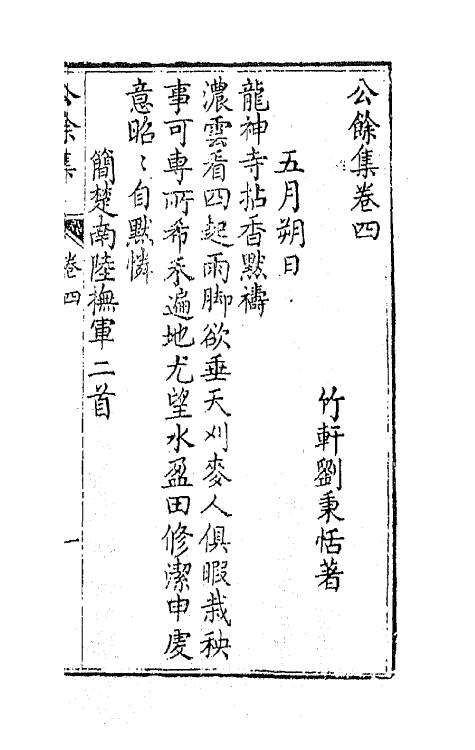 公餘集卷四
竹軒劉秉恬著
五月朔日
龍神寺拈香默禱
濃雲看四起雨脚欲垂天刈麥人俱暇栽秧
事可專所希禾遍地尤望水盈田修潔申虔
意昭〻自默憐
簡楚南陸撫軍二首
公餘集 卷四 一